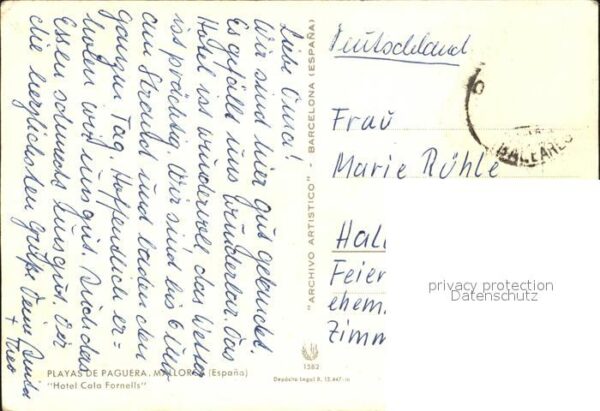 Liebe Oma!
Wir sind hier gut gelandet.
Es gefällt uns wunderbar. Das
Hotel ist wundervoll, das Wetter
ist prächtig. Wir sind bis 6 Uhr
am Strand und baden den
ganzen Tag. Hoffentlich er-
holen wir uns gut. Auch das
Essen schmeckt uns gut. Dir
die herzlichsten Grüße Deine
+ Theo
PLAYAS DE PAGUERA. MALLORCA (España)
"Hotel Cala Fornells"
"ARCHIVO ARTISTICO" - BARCELONA (ESPAÑA)
1582
Depósito Legal B. 12.447-
Deutschland
BALEARES
Frau
Marie Rühle
Hal
Feier
ehem.
Zimm
privacy protection
Datenschutz